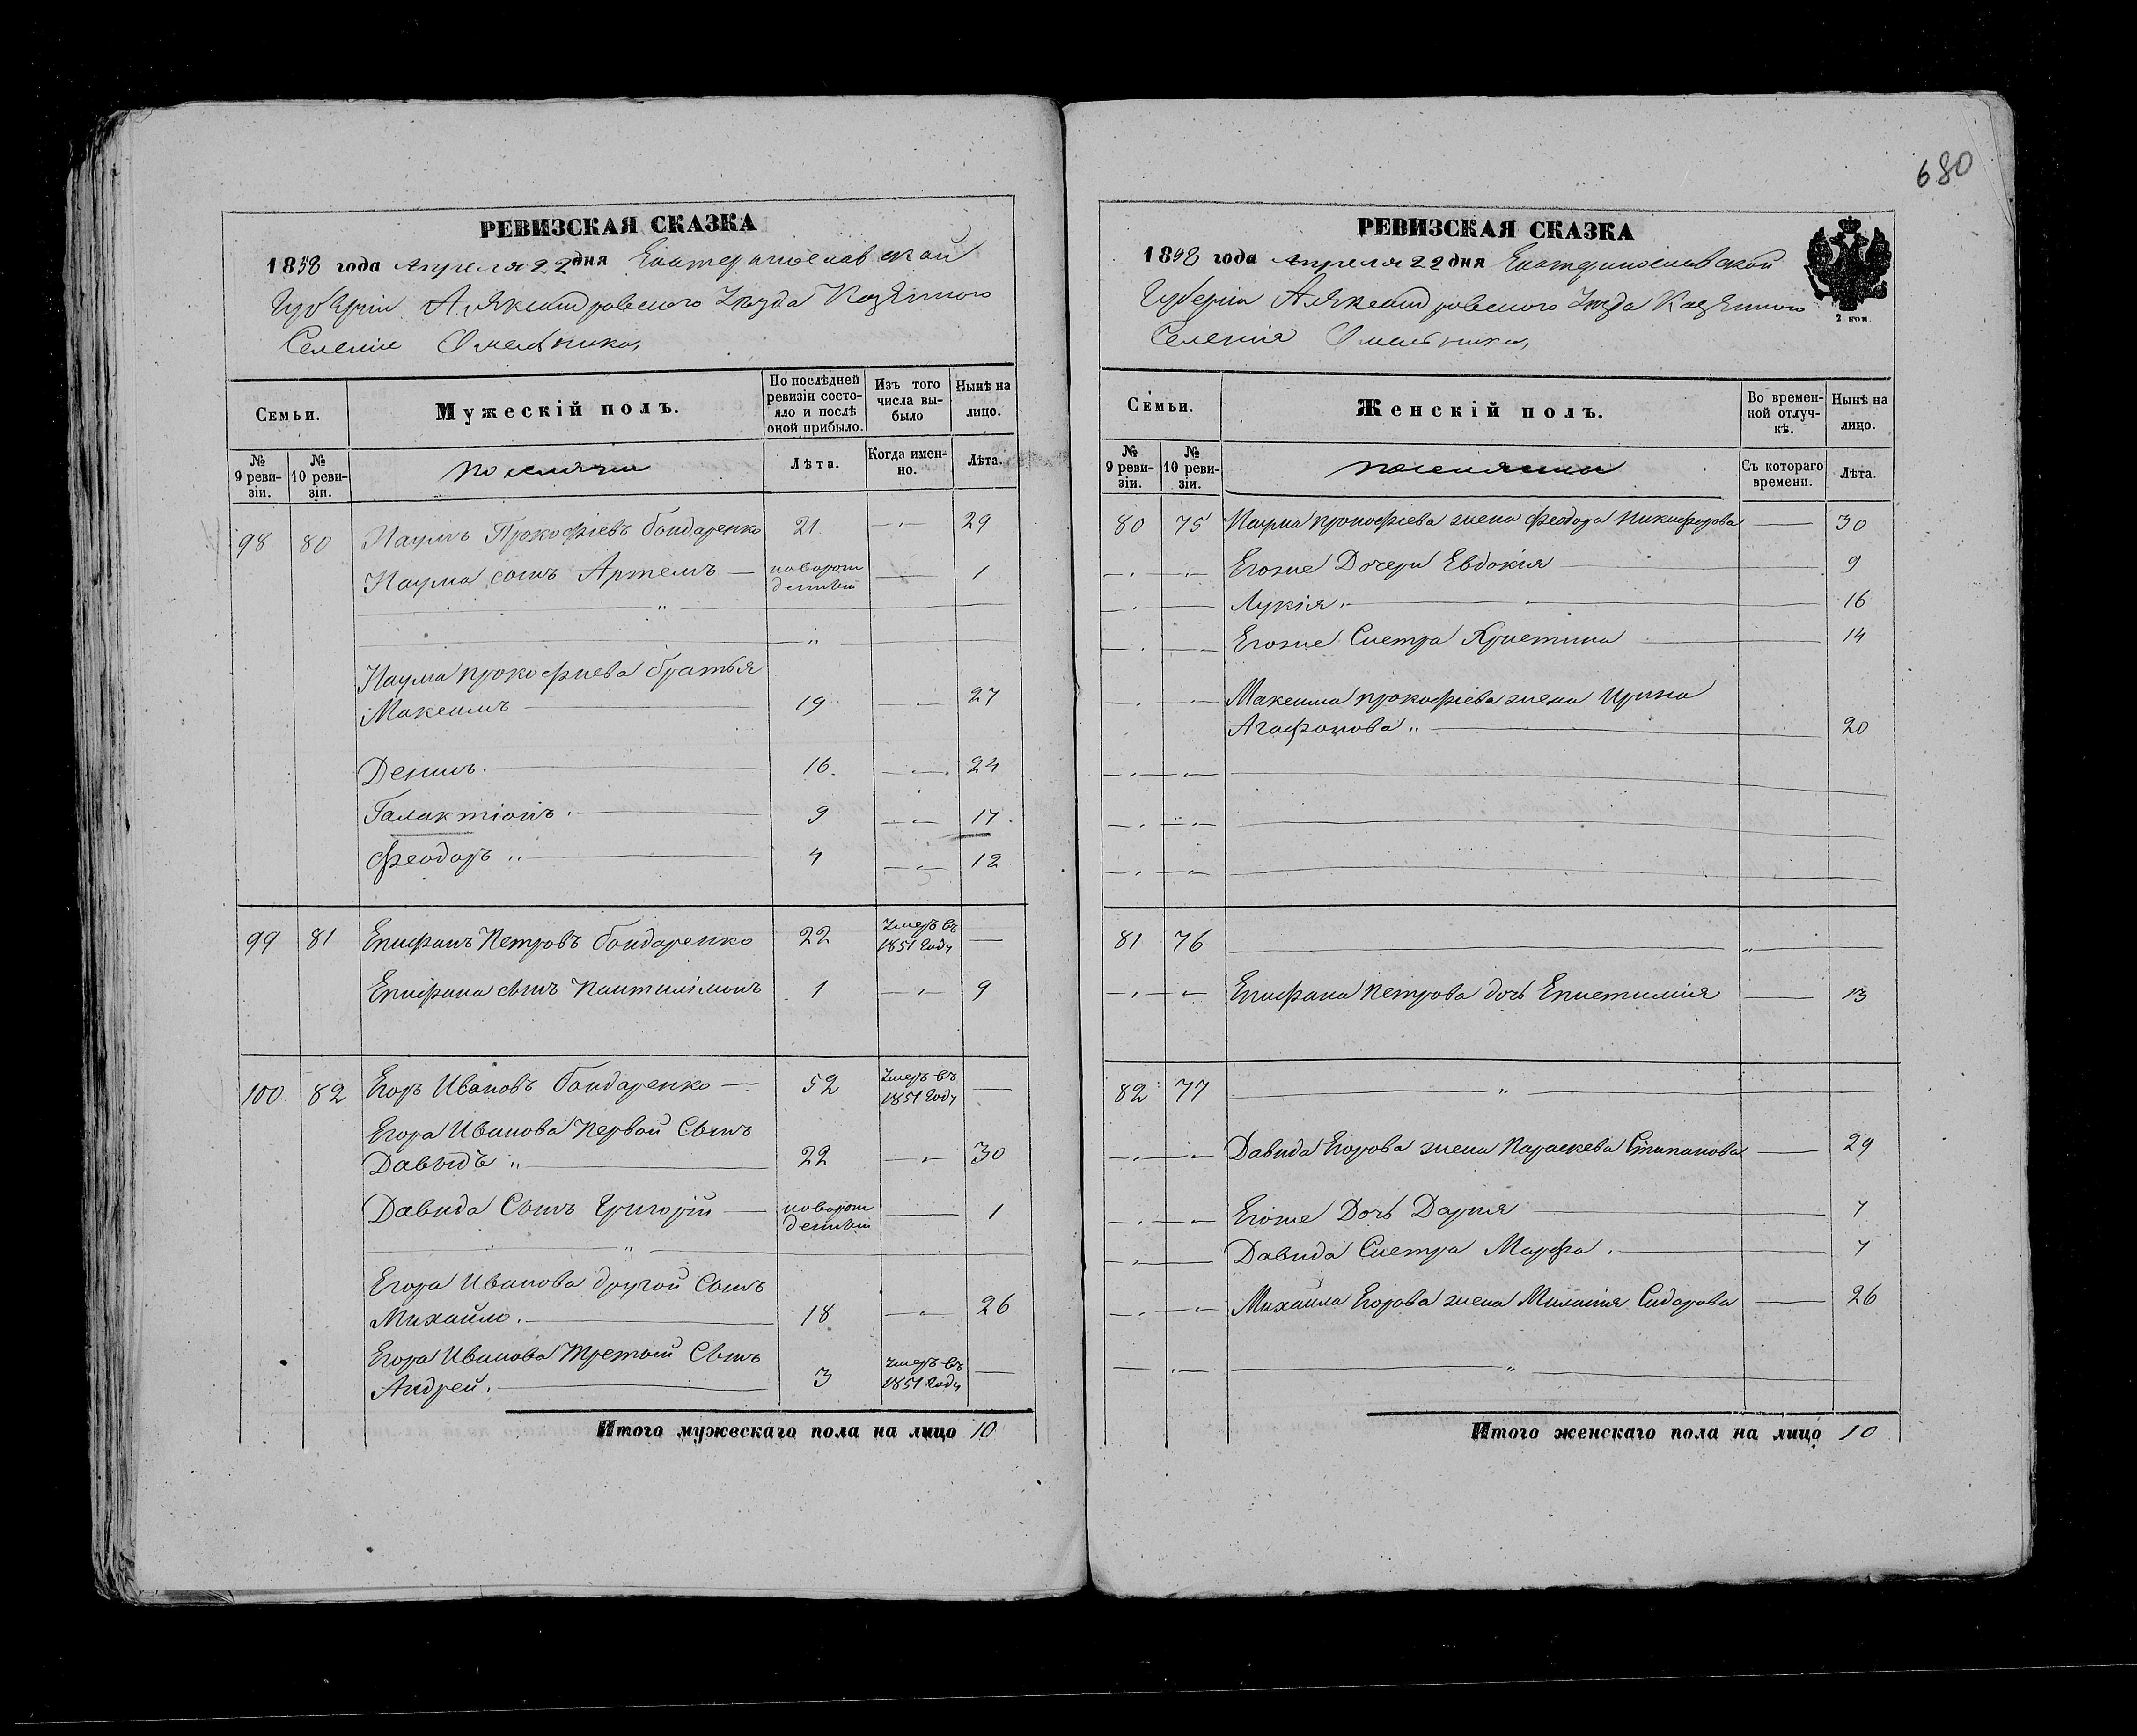 680
РЕВИЗСКАЯ СКАЗКА
1858 года Апреля 22 дня Екатеринославской
Губерніи Александровского Уезда Казенного
Селенія Омельника,
Семьи.
Мужескій полъ.
По послѣдней ревизіи состояло и послѣ оной прибыло.
Изъ того числа выбыло
Нынѣ на лицо.
№ 9 ревизіи.
№ 10 ревизіи.
поселяни
Лѣта.
Когда именно.
Лѣта.
98 80 Наумъ Прокофіевъ Бондаренко 21 29
Наума сынъ Артемъ новорожденный 1
Наума Прокофиева братья
Максимъ 19 27
Денисъ. 16. 24
Галактіонъ. 9 17.
Феодоръ 4 12
99 81 Епифанъ Петровъ Бондаренко 22 Умеръ въ 1851 Году
Епифана сынъ Пантилімонъ 1 9
100 82 Егоръ Ивановъ Бондаренко 52 Умеръ въ 1851 Году
Егора Иванова Первой Сынъ
Давыдъ 22 30
Давида Сынъ Григорій новорожденный 1
Егора Иванова другой Сынъ
Михайло. 18 26
Егора Иванова Третий Сынъ
Андрей. 3 Умеръ въ 1851 Году
Итого мужескаго пола на лицо 10
РЕВИЗСКАЯ СКАЗКА
1858 года Апреля 22 дня Екатеринославской
Губерніи Александровского Уезда Казенного
Селенія Омельника,
2 коп
Семьи.
Женскій полъ.
Во временной отлучкѣ.
Нынѣ на лицо.
№ 9 ревизіи.
№ 10 ревизіи.
поселянки
Съ котораго времени.
Лѣта.
80 75 Наума прокофіева жена Феодора Никифорова 30
Егоже Дочери Евдокія 9
Лукія 16
Егоже Сестра Кристина 14
Максима прокофіева жена Ирина
Агафонова 20
81 76
Епифана Петрова дочь Епистимия 13
82 77
Давида Егорова жена Параскева Стипанова 29
Егоже Дочь Дария 7
Давида Сестра Марфа. 7
Михаила Егорова жена Миланія Сидарова 26
Итого женскаго пола на лицо 10